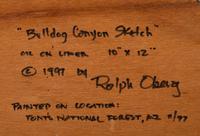 "Bulldog Canyon Sketch"
OIL ON LINEN 10" x 12"
© 1997 by
Ralph Oberg
PAINTED ON LOCATION:
TONTO NATIONAL FOREST, AZ 11/97